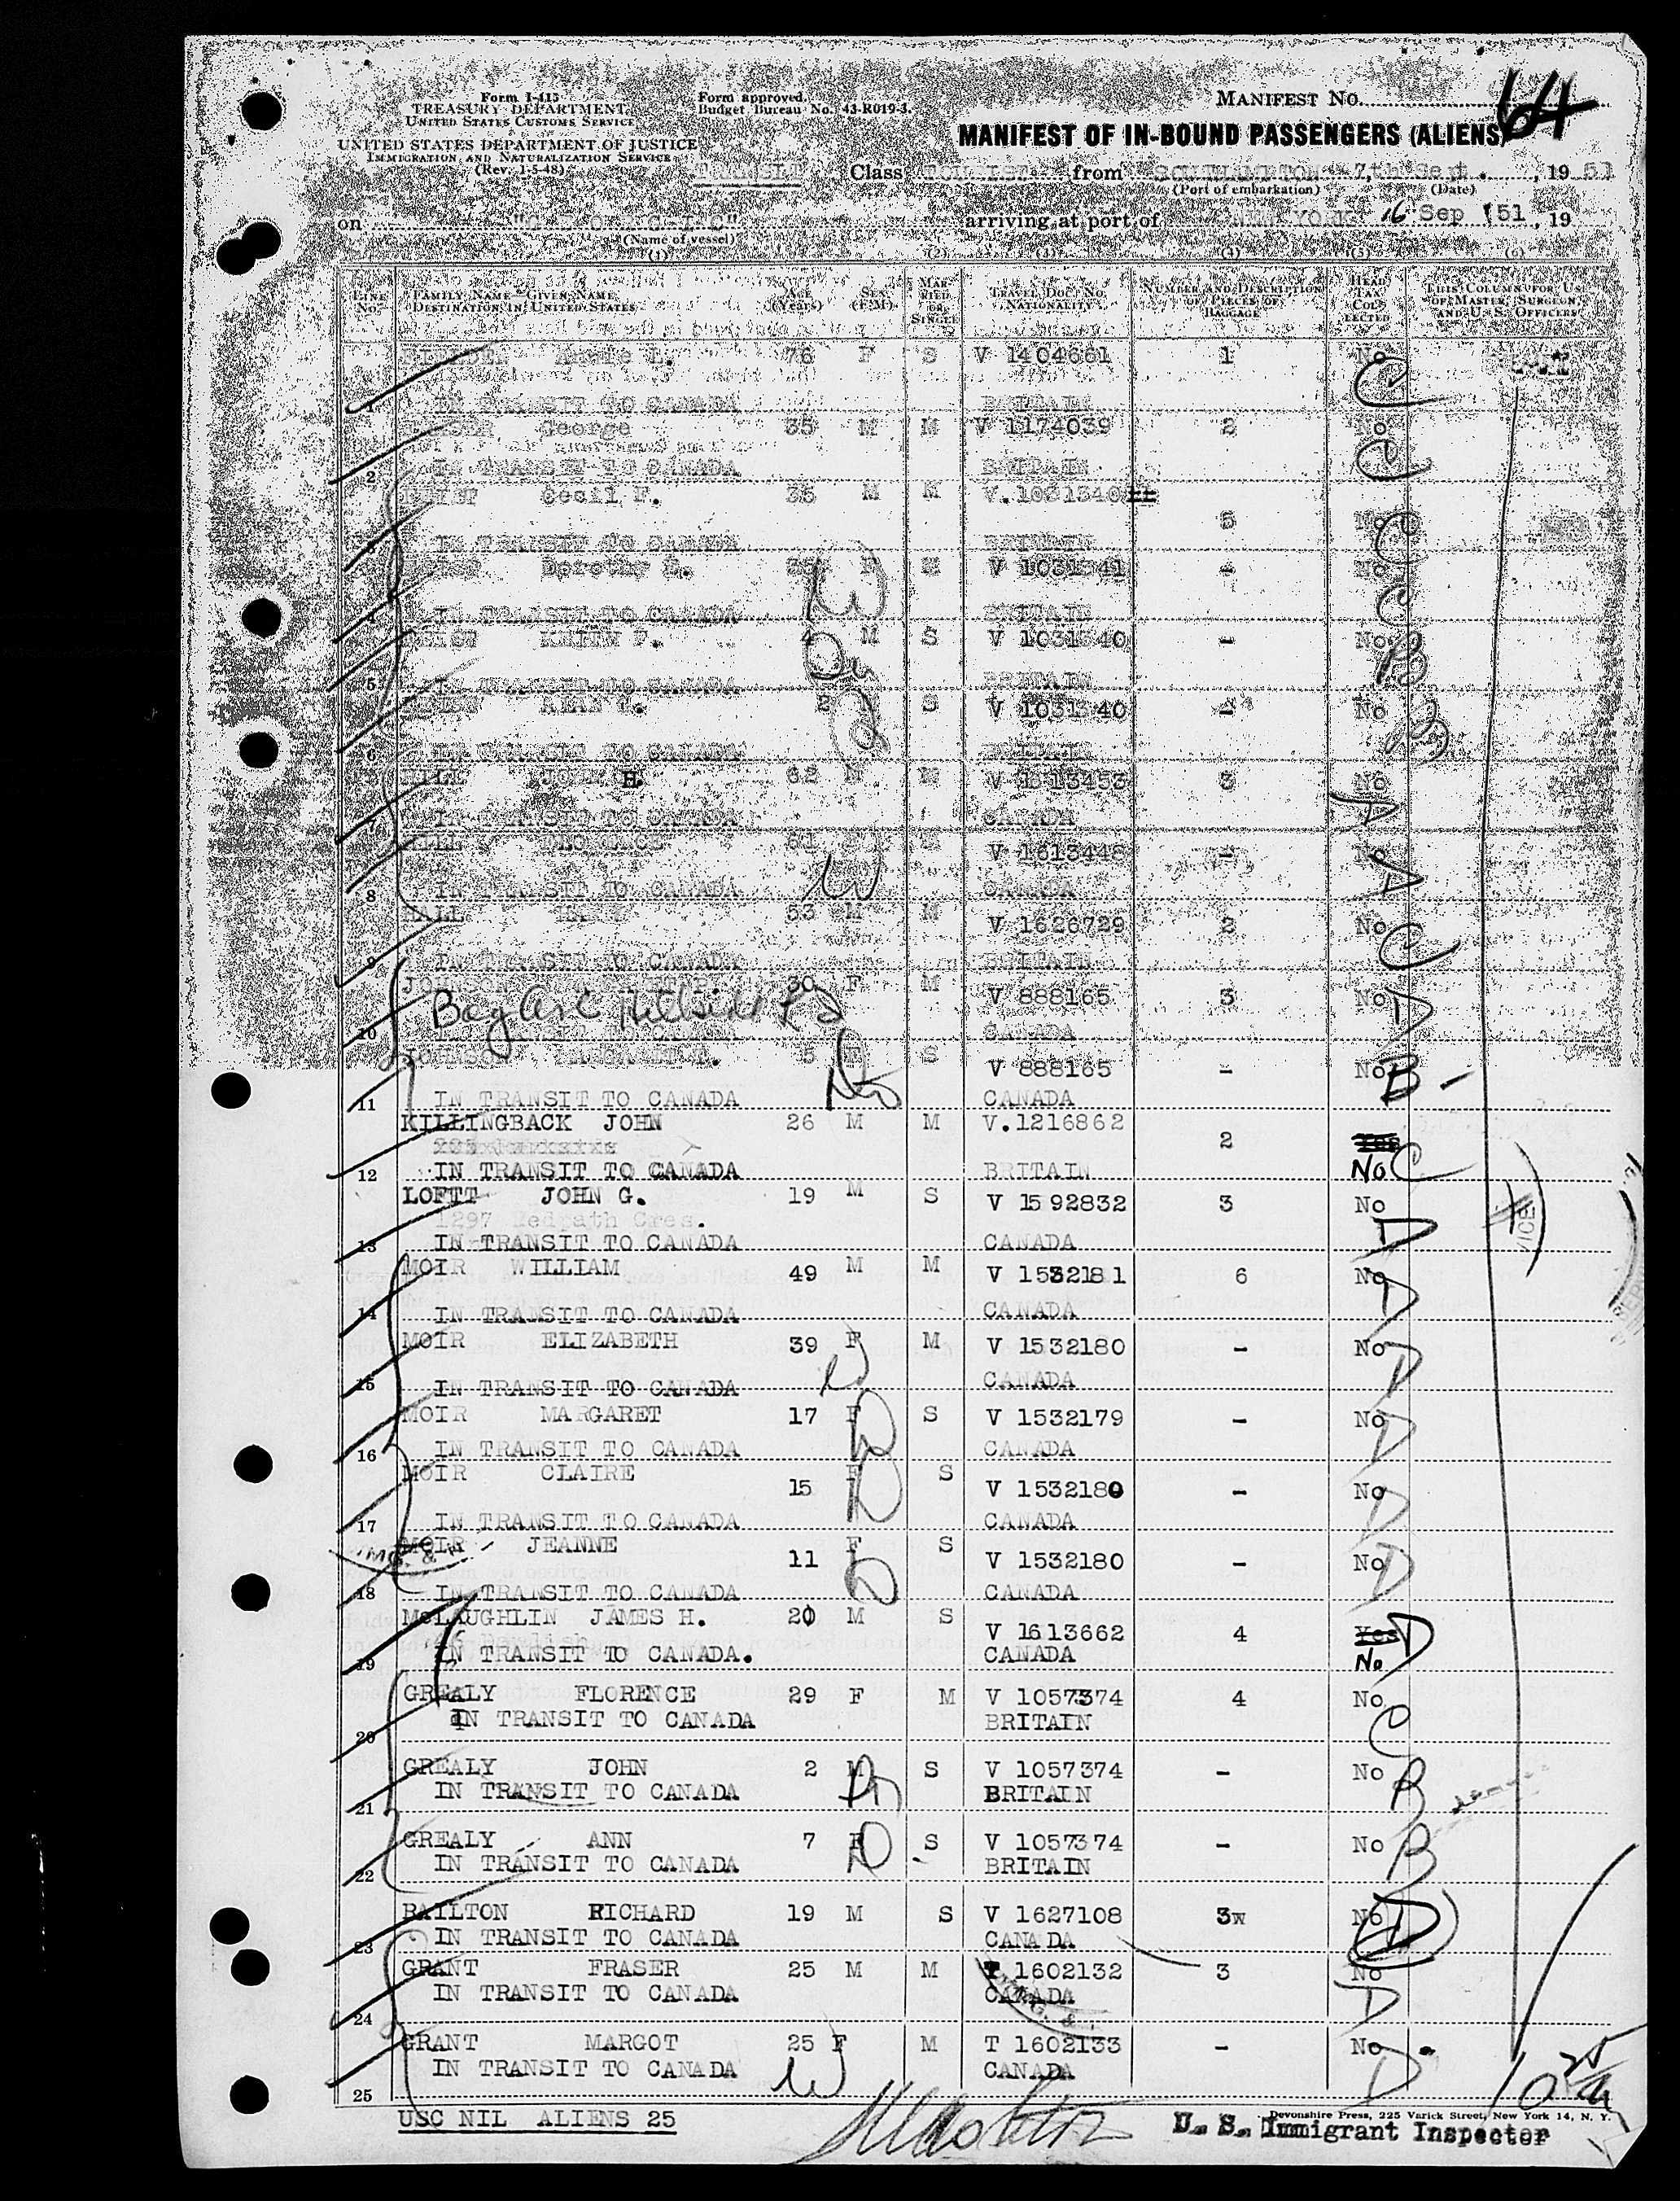 Form I-415
TREASURY DEPARTMENT
UNITED STATES CUSTOMS SERVICE
UNITED STATES DEPARTMENT OF JUSTICE
IMMIGRATION AND NATURALIZATION SERVICE
(Rev. 1-5-48)
Form approved.
Budget Bureau No. 43-R019-3.
MANIFEST NO. 64
MANIFEST OF IN-BOUND PASSENGERS (ALIENS)
TRANSIT Class TOURIST from SOUTHAMPTON 7th Sept., 19 51
(Port of embarkation) (Date)
on "G E O R G I C" arriving at port of NEW YORK 16 Sep '51, 19
(Name of vessel)
(1) (2) (3) (4) (5) (6)
LINE No. FAMILY NAME—GIVEN NAME DESTINATION IN UNITED STATES AGE (Years) SEX (F-M) MARRIED OR SINGLE TRAVEL DOC. NO. NATIONALITY NUMBER AND DESCRIPTION OF PIECES OF BAGGAGE HEAD TAX COLLECTED THIS COLUMN FOR USE OF MASTER, SURGEON, AND U. S. OFFICERS
Annie L. 76 F S V 1404661 1 No C
1 IN TRANSIT TO CANADA BRITAIN
George 35 M M V 1174039 2 No C
2 IN TRANSIT TO CANADA BRITAIN
Cecil F. 35 M M V.1031340 5 No C
3 IN TRANSIT TO CANADA BRITAIN
Dorothy 35 F M V 1031341 - No C
4 IN TRANSIT TO CANADA BRITAIN
KEITH F. 4 M S V 1031340 - No B
5 IN TRANSIT TO CANADA BRITAIN
2 S V 1031340 - No B
6 IN TRANSIT TO CANADA BRITAIN
H. 62 M M V 1613453 3 No D
7 IN TRANSIT TO CANADA CANADA
61 V 1613448 - No D
8 IN TRANSIT TO CANADA CANADA
HALL 53 M M V 1626729 2 No C
9 IN TRANSIT TO CANADA BRITAIN
JOHNSON 30 F M V 888165 3 No D
10 CANADA
JOHNSON 5 F S V 888165 - No B -
11 IN TRANSIT TO CANADA CANADA
KILLINGBACK JOHN 26 M M V.1216862 2 Yes No C
12 IN TRANSIT TO CANADA BRITAIN
LOFTT JOHN G. 19 M S V 1592832 3 No D
1297 Redpath Cres.
13 IN TRANSIT TO CANADA CANADA
MOIR WILLIAM 49 M M V 1532181 6 No D
14 IN TRANSIT TO CANADA CANADA
MOIR ELIZABETH 39 F M V 1532180 - No D
15 IN TRANSIT TO CANADA CANADA
MOIR MARGARET 17 F S V 1532179 - No D
16 IN TRANSIT TO CANADA CANADA
MOIR CLAIRE 15 F S V 1532180 - No D
17 IN TRANSIT TO CANADA CANADA
MOIR JEANNE 11 F S V 1532180 - No D
18 IN TRANSIT TO CANADA CANADA
McLAUGHLIN JAMES H. 20 M S V 1613662 4 Yes No D
19 IN TRANSIT TO CANADA. CANADA
GREALY FLORENCE 29 F M V 1057374 4 No C
20 IN TRANSIT TO CANADA BRITAIN
GREALY JOHN 2 M S V 1057374 - No B
21 IN TRANSIT TO CANADA BRITAIN
GREALY ANN 7 F S V 1057374 - No B
22 IN TRANSIT TO CANADA BRITAIN
BAILTON RICHARD 19 M S V 1627108 3w No D
23 IN TRANSIT TO CANADA CANADA
GRANT FRASER 25 M M T 1602132 3 No D
24 IN TRANSIT TO CANADA CANADA
GRANT MARGOT 25 F M T 1602133 - No D
25 IN TRANSIT TO CANADA CANADA
USC NIL ALIENS 25
Devonshire Press, 225 Varick Street, New York 14, N. Y.
U. S. Immigrant Inspector